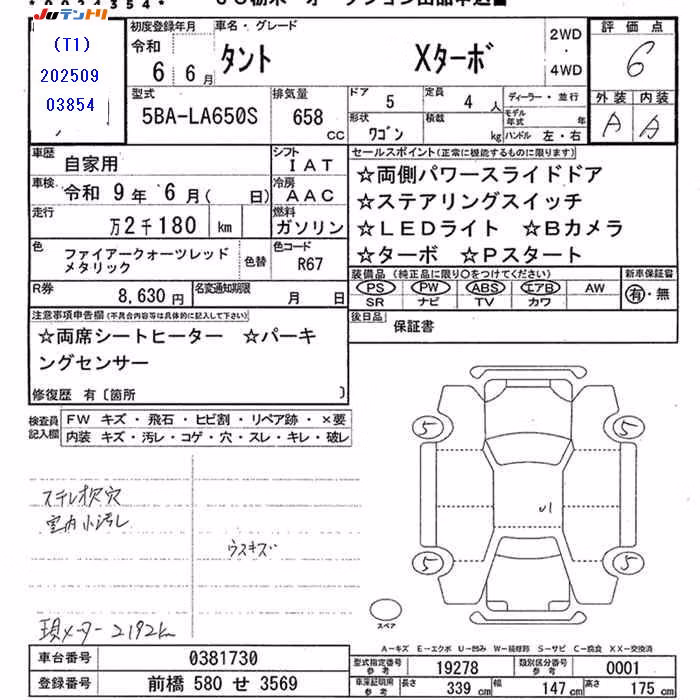 Juテントリ
(T1)
202509
03854
初度登録年月
令和
6 6月
車名・グレード
タント Xターボ
2WD
・
4WD
評価点
6
外装 内装
A A
型式
5BA-LA650S
排気量
658 CC
ドア
5
定員
4 人
形状
ワゴン
積載
kg
ディーラー・並行
モデル年式 年
ハンドル 左・右
車歴
自家用
シフト
I A T
車検
令和 9年 6月( 日)
冷房
A A C
走行
万2千180 km
燃料
ガソリン
色
ファイアークォーツレッド
メタリック
色替
色コード
R67
R券
8,630円
名変通知期限
月 日
セールスポイント(正常に機能するものに限ります)
☆両側パワースライドドア
☆ステアリングスイッチ
☆LEDライト ☆Bカメラ
☆ターボ ☆Pスタート
装備品 (純正品に限り○をつけてください)
PS PW ABS エアB AW
SR ナビ TV カワ
新車保証書
有・無
後日品
保証書
注意事項申告欄(不具合内容等は具体的に記入して下さい)
☆両席シートヒーター ☆パーキ
ングセンサー
修復歴 有〔箇所 〕
検査員
記入欄
FW キズ・飛石・ヒビ割・リペア跡・×要
内装 キズ・汚レ・コゲ・穴・スレ・キレ・破レ
室内小汚レ
ウスキズ
現メーター 2192km
5 5
U1
5 5
スペア
A－キズ E－エクボ U－凹み W－補修跡 S－サビ C－腐食 XX－交換済
車台番号
0381730
登録番号
前橋 580 せ 3569
型式指定番号
参考
19278
類別区分番号
参考
0001
車庫証明用
参考
長さ 339 cm
幅 147 cm
高さ 175 cm